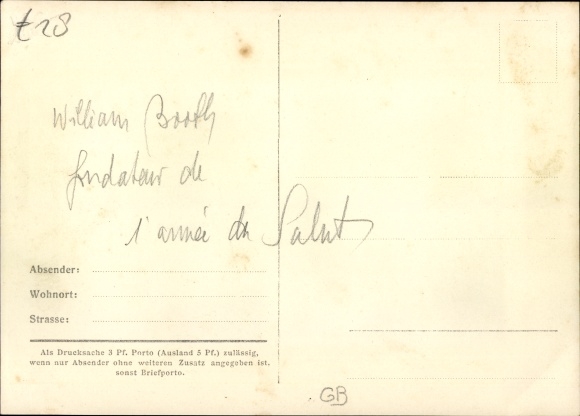 £28
William Booth
fondateur de
l'armée du Salut
Absender:
Wohnort:
Strasse:
Als Drucksache 3 Pf. Porto (Ausland 5 Pf.) zulässig,
wenn nur Absender ohne weiteren Zusatz angegeben ist,
sonst Briefporto.
GB